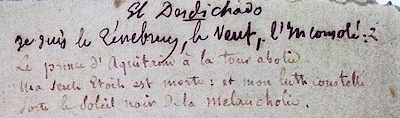 El Desdichado
Je suis le Ténébreux, le Veuf, l'Inconsolé :
Le prince d'Aquitaine à la tour abolie
Ma seule Etoile est morte : et mon luth constellé
Porte le Soleil noir de la Melancholie.